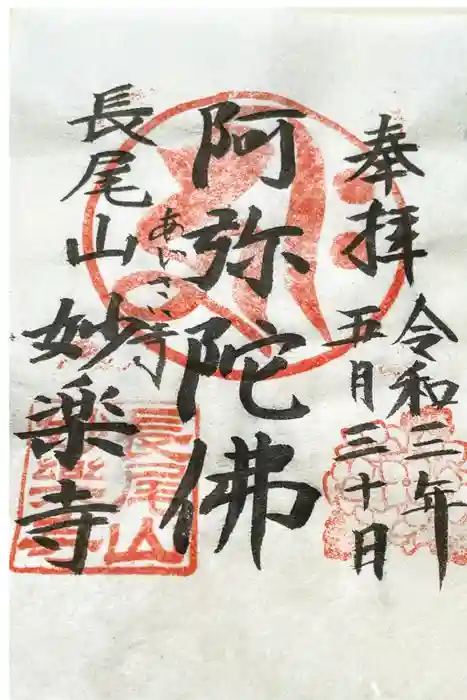 奉拝
令和三年
五月三十日
阿弥陀佛
あじさい寺
長尾山
妙楽寺
長尾山
妙楽寺